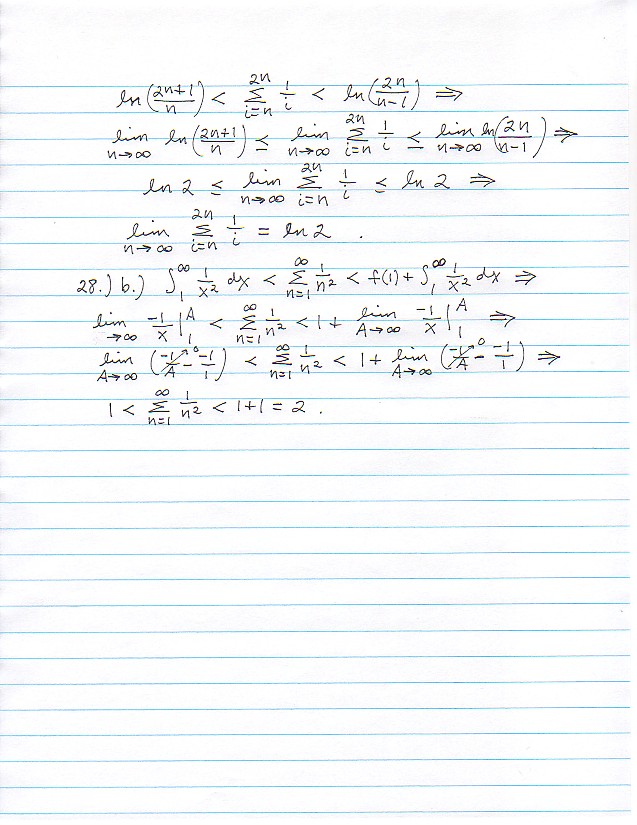 ln(2n+1/n) < 2n∑i=n 1/i < ln(2n/n-1) ⇒
lim n→∞ ln(2n+1/n) ≤ lim n→∞ 2n∑i=n 1/i ≤ lim n→∞ ln(2n/n-1) ⇒
ln 2 ≤ lim n→∞ 2n∑i=n 1/i ≤ ln 2 ⇒
lim n→∞ 2n∑i=n 1/i = ln 2 .
28.) b.) ∫₁^∞ 1/x² dx < ∞∑n=1 1/n² < f(1) + ∫₁^∞ 1/x² dx ⇒
lim →∞ -1/x |₁^A < ∞∑n=1 1/n² < 1 + lim A→∞ -1/x |₁^A ⇒
lim A→∞ (-1/A→0 - -1/1) < ∞∑n=1 1/n² < 1 + lim A→∞ (-1/A→0 - -1/1) ⇒
1 < ∞∑n=1 1/n² < 1+1 = 2 .